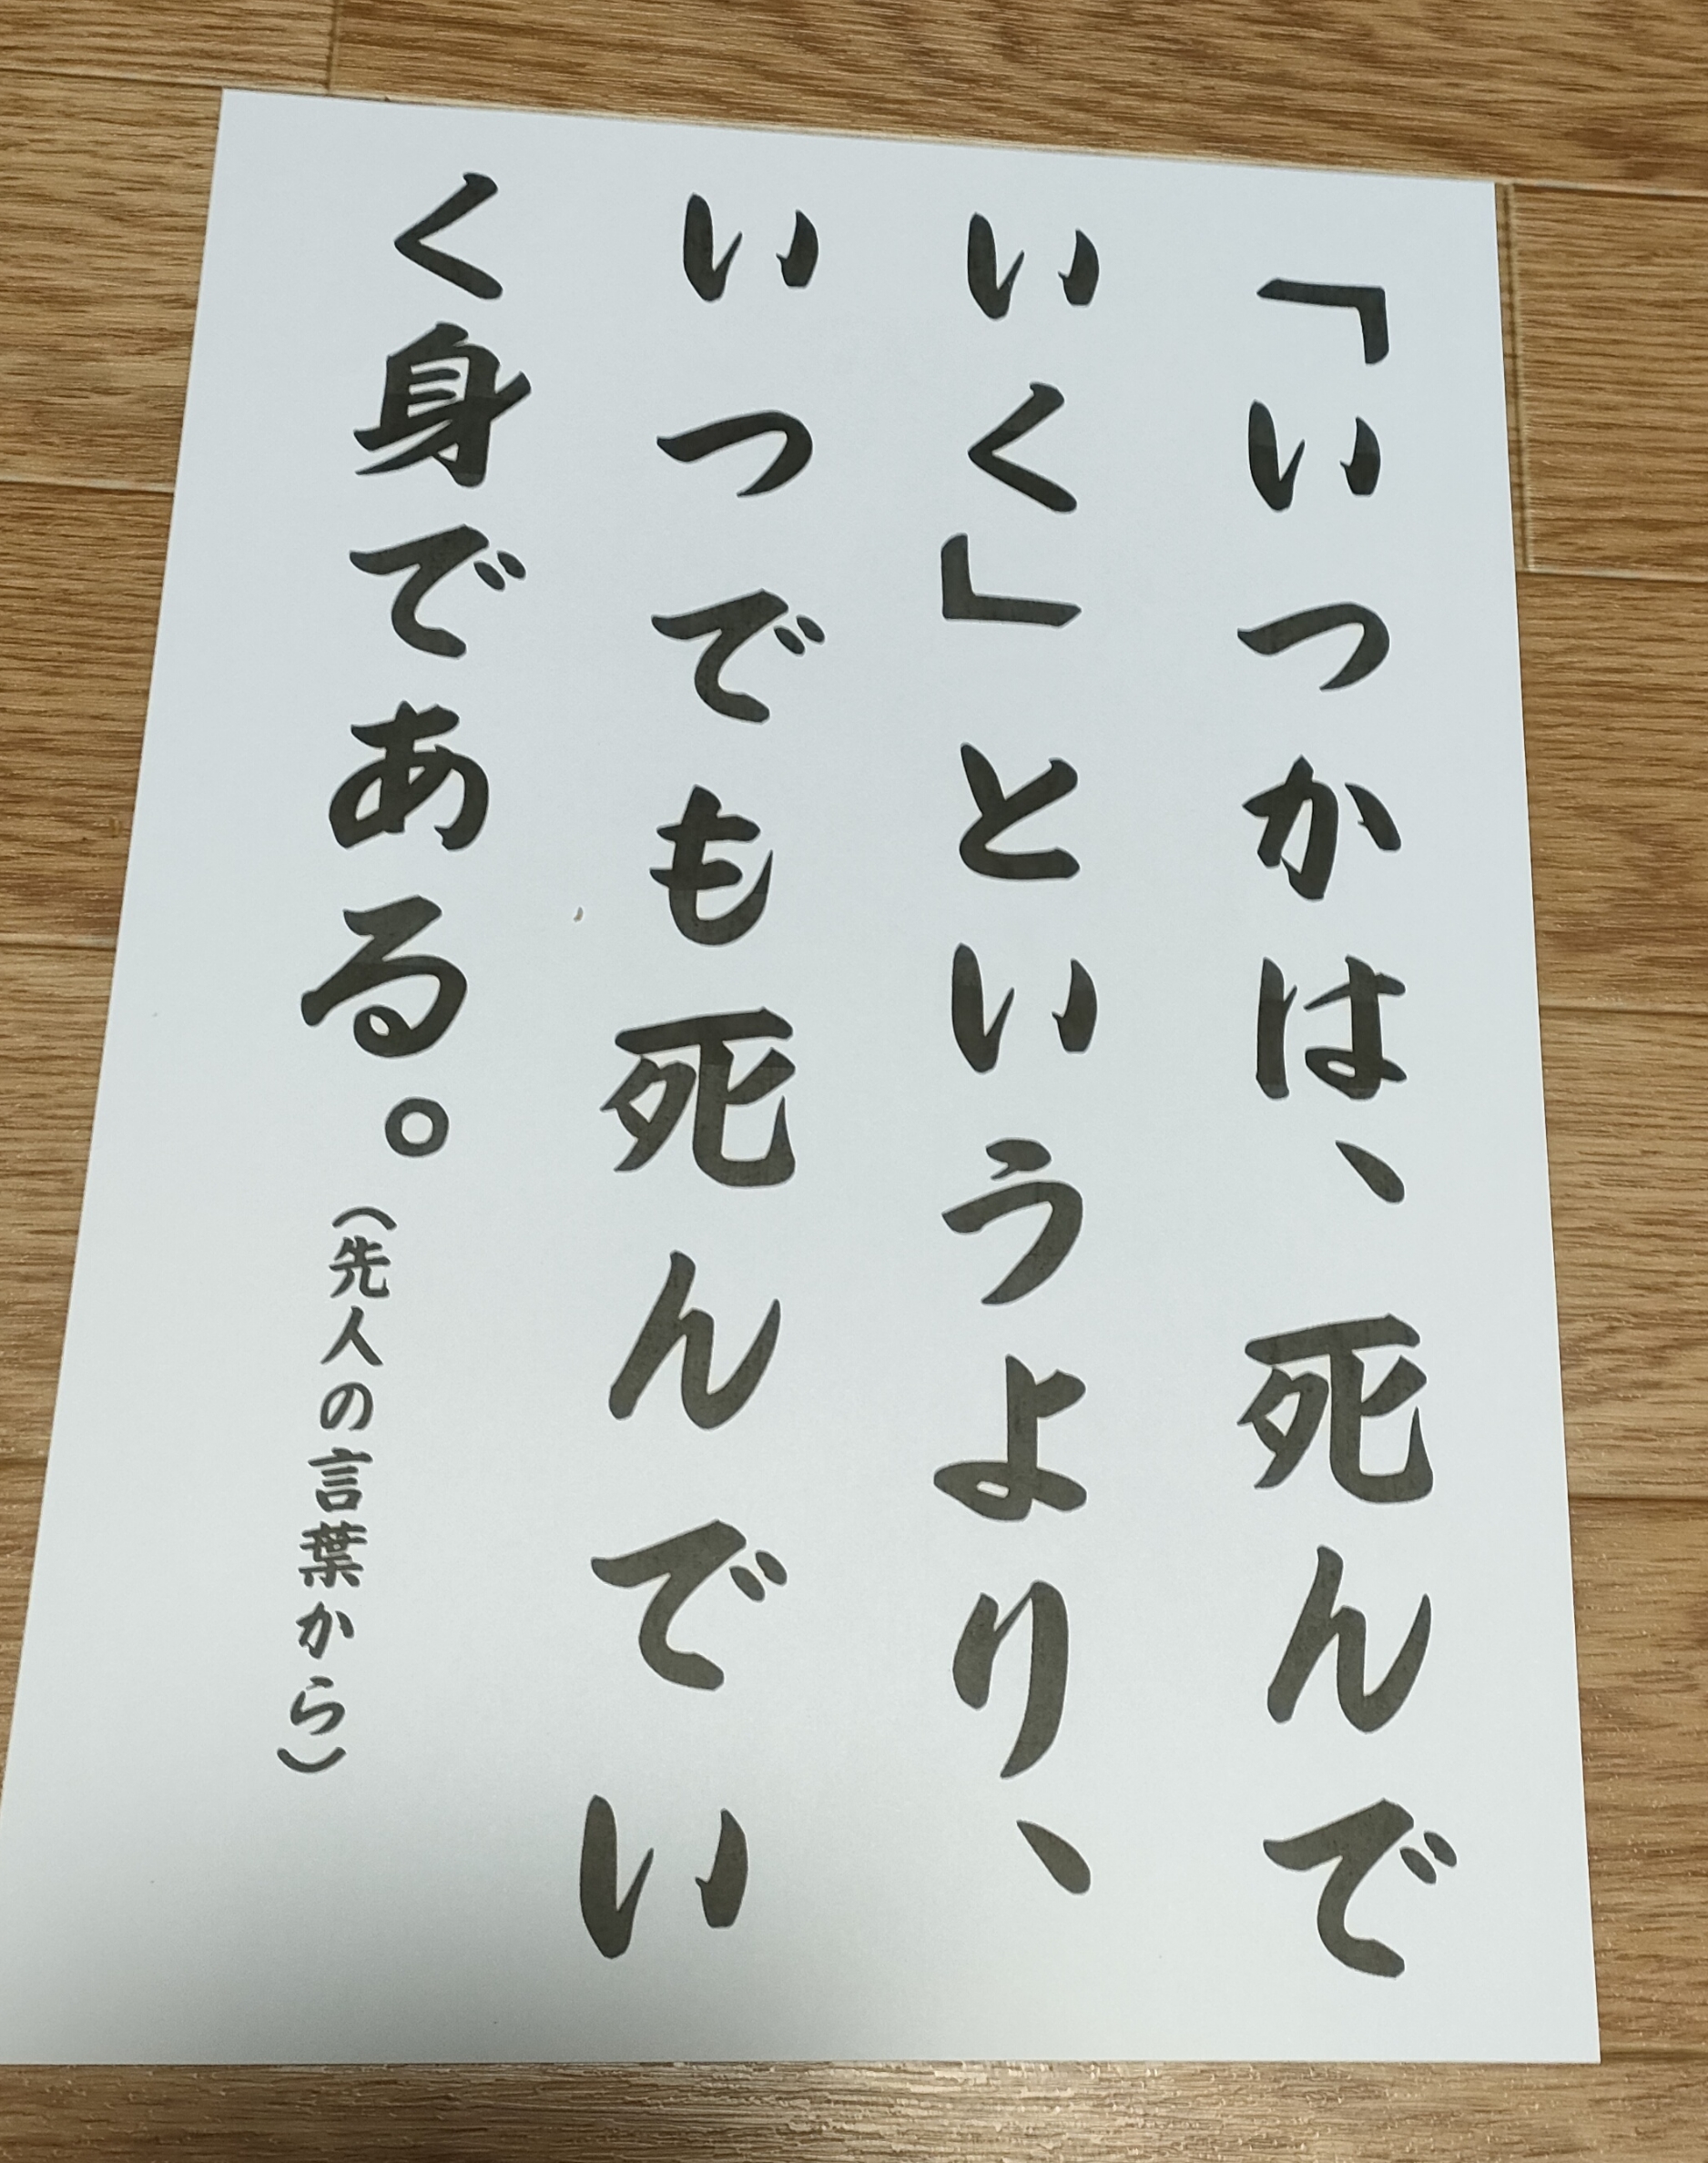 「いつかは、死んで
いく」というより、
いつでも死んでい
く身である。(先人の言葉から)